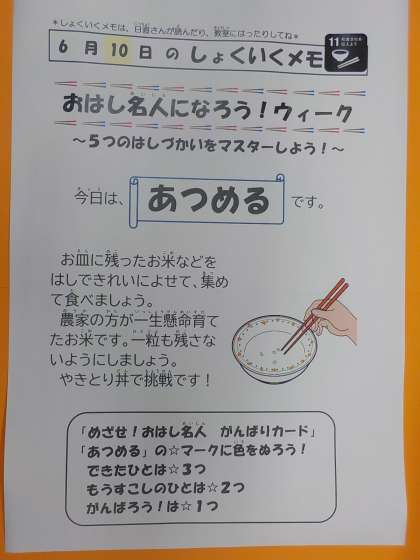 ＊しょくいくメモは、日直さんが読んだり、教室にはったりしてね＊
6月10日のしょくいくメモ
11
おはし名人になろう！ウィーク
～５つのはしづかいをマスターしよう！～
今日は、あつめるです。
お皿に残ったお米などを
はしできれいによせて、集め
て食べましょう。
農家の方が一生懸命育て
たお米です。一粒も残さな
いようにしましょう。
やきとり丼で挑戦です！
「めざせ！おはし名人　がんばりカード」
「あつめる」の☆マークに色をぬろう！
できたひとは☆３つ
もうすこしのひとは☆２つ
がんばろう！は☆１つ